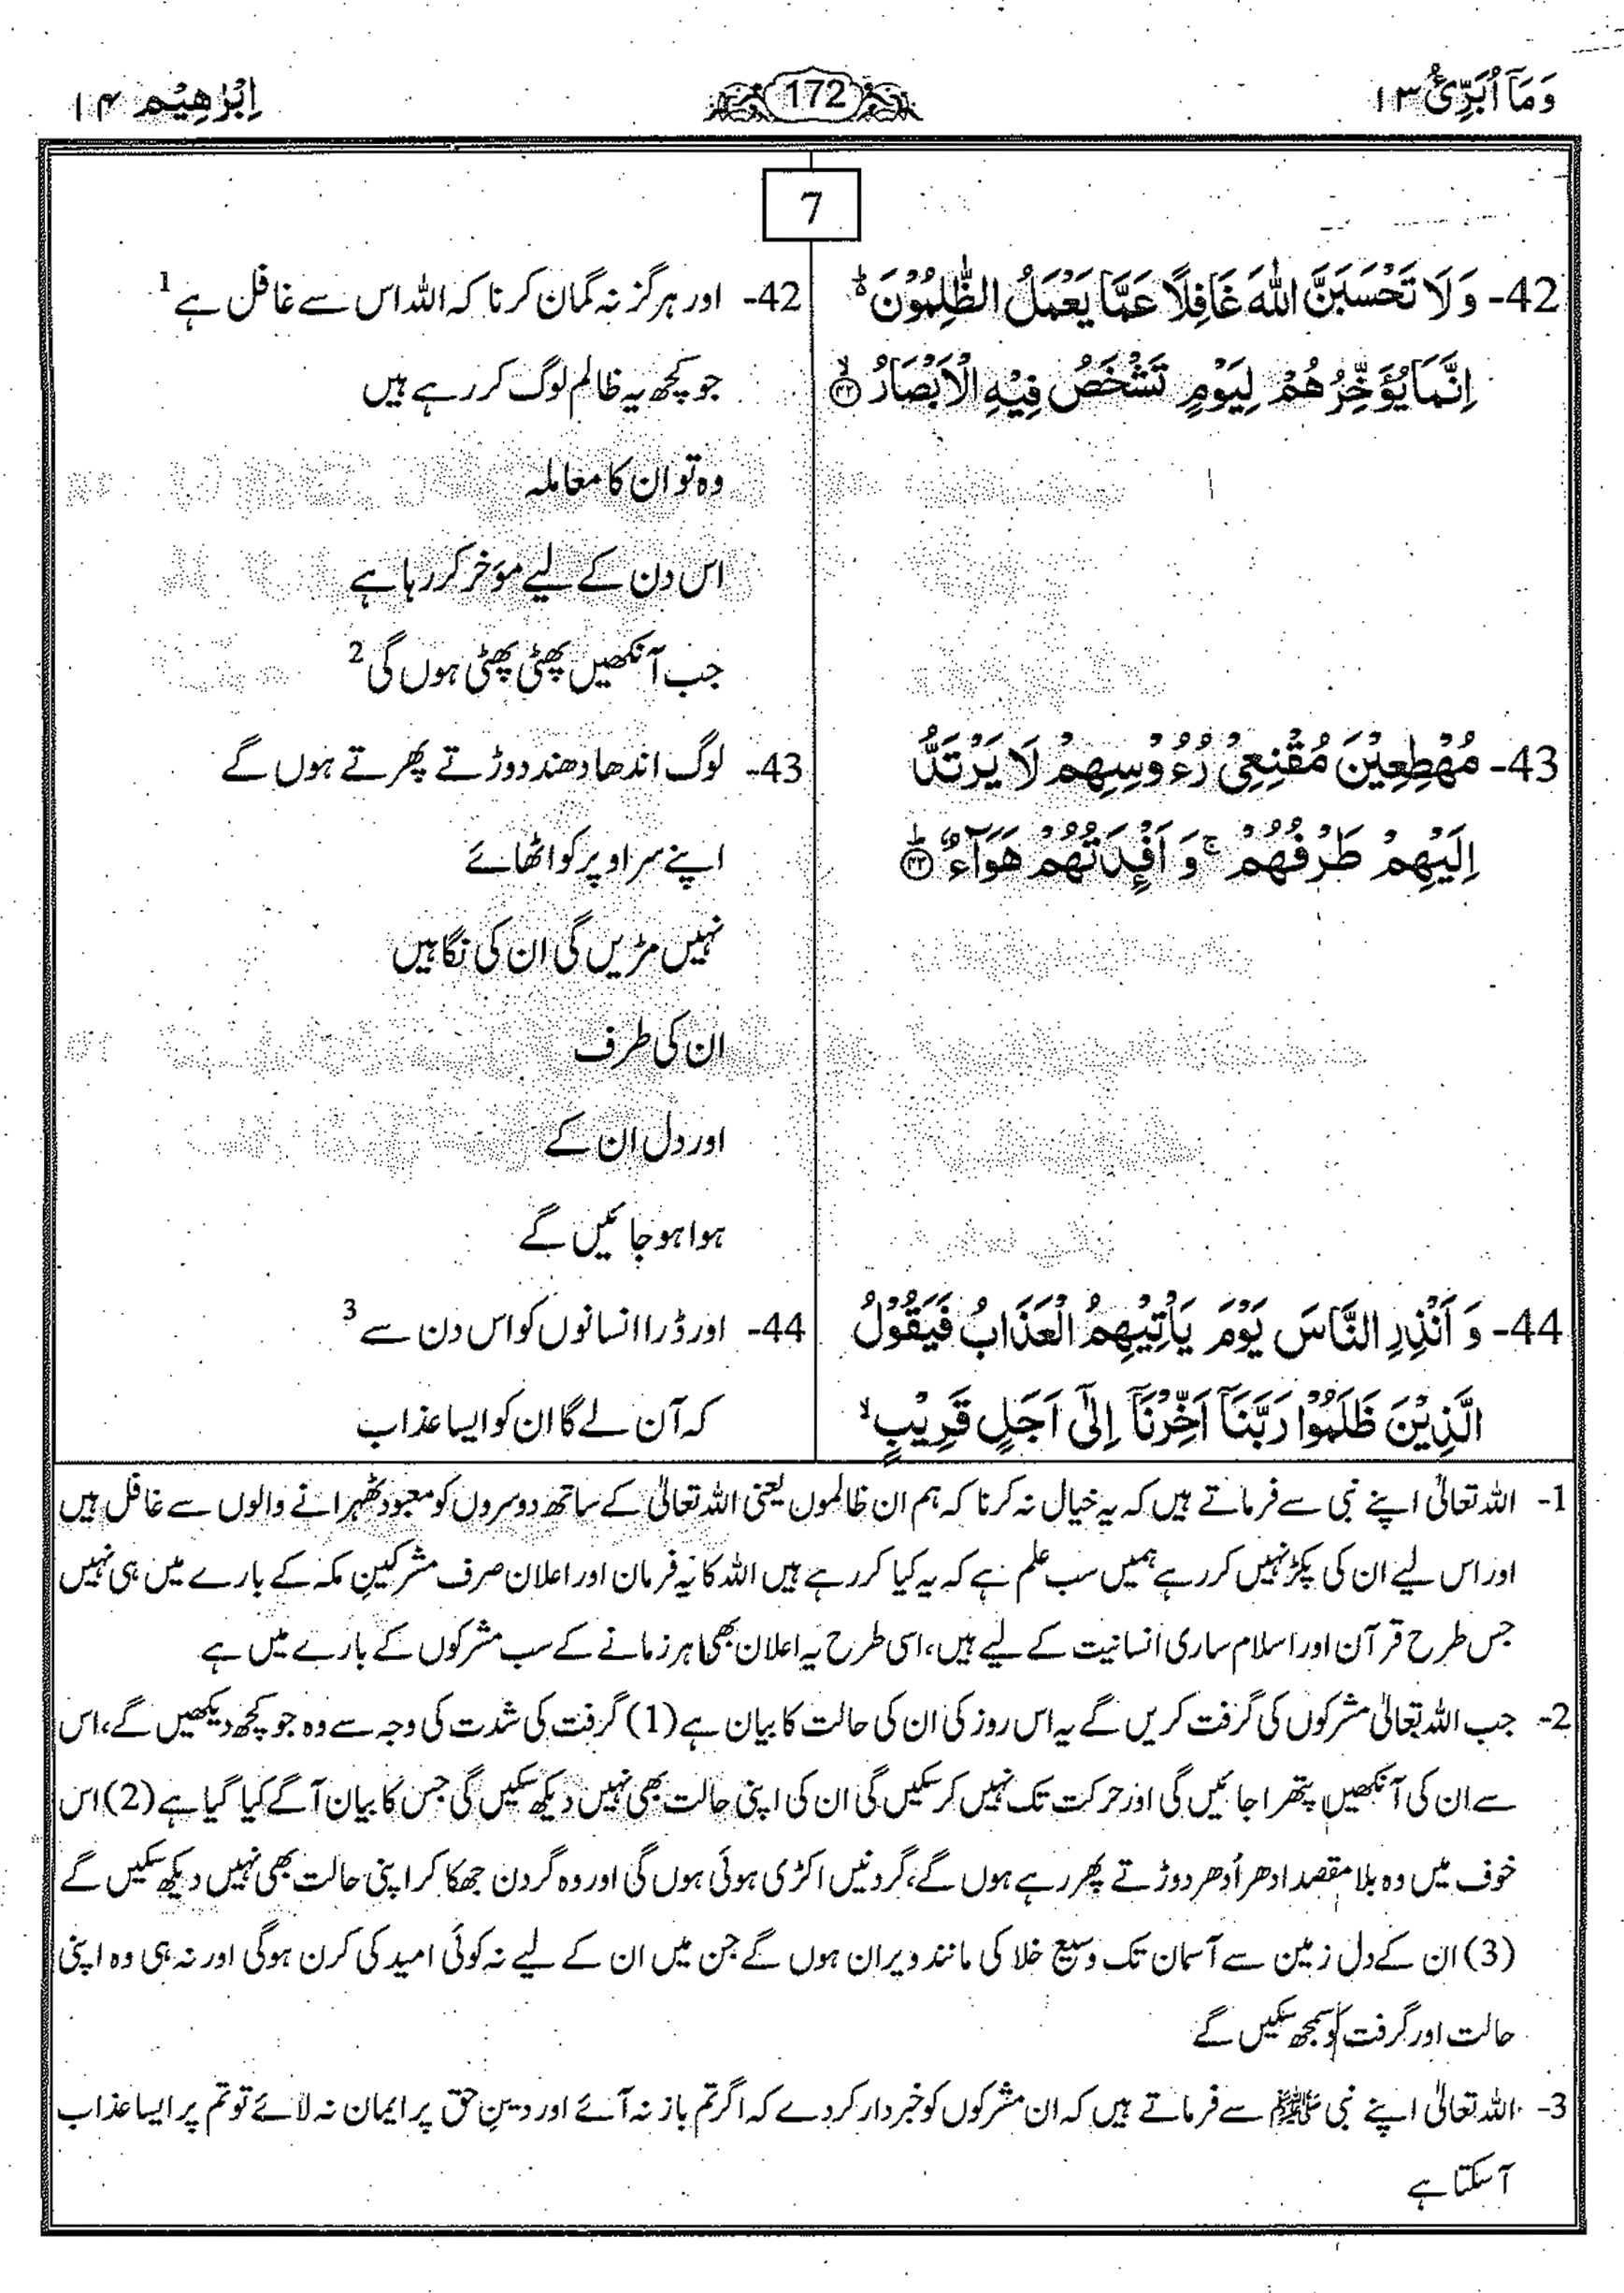 وَمَآ اُبَرِّئُ ۱۳
172
اِبْرٰهِيْم ۱۴
7
42- وَلَا تَحْسَبَنَّ اللّٰهَ غَافِلًا عَمَّا يَعْمَلُ الظّٰلِمُوْنَ ؕ
اِنَّمَا يُؤَخِّرُهُمْ لِيَوْمٍ تَشْخَصُ فِيْهِ الْاَبْصَارُ ۙ‏﴿۴۲﴾
43- مُهْطِعِيْنَ مُقْنِعِىْ رُءُوْسِهِمْ لَا يَرْتَدُّ
اِلَيْهِمْ طَرْفُهُمْ ۚ وَ اَفْـِٕدَتُهُمْ هَوَآءٌ ؕ﴿۴۳﴾
44- وَ اَنْذِرِ النَّاسَ يَوْمَ يَاْتِيْهِمُ الْعَذَابُ فَيَقُوْلُ
الَّذِيْنَ ظَلَمُوْا رَبَّنَاۤ اَخِّرْنَاۤ اِلٰٓى اَجَلٍ قَرِيْبٍ ۙ
42- اور ہرگز نہ گمان کرنا کہ اللہ اس سے غافل ہے 1
جو کچھ یہ ظالم لوگ کر رہے ہیں
وہ تو ان کا معاملہ
اس دن کے لیے مؤخر کر رہا ہے
جب آنکھیں پھٹی پھٹی ہوں گی 2
43- لوگ اندھا دھند دوڑتے پھرتے ہوں گے
اپنے سر اوپر کو اٹھائے
نہیں مڑیں گی ان کی نگاہیں
ان کی طرف
اور دل ان کے
ہوا ہو جائیں گے
44- اور ڈرا انسانوں کو اس دن سے 3
کہ آن لے گا ان کو ایسا عذاب
1- اللہ تعالیٰ اپنے نبی سے فرماتے ہیں کہ یہ خیال نہ کرنا کہ ہم ان ظالموں یعنی اللہ تعالیٰ کے ساتھ دوسروں کو معبود ٹھہرانے والوں سے غافل ہیں
اور اس لیے ان کی پکڑ نہیں کر رہے ہمیں سب علم ہے کہ یہ کیا کر رہے ہیں اللہ کا یہ فرمان اور اعلان صرف مشرکینِ مکہ کے بارے میں ہی نہیں
جس طرح قرآن اور اسلام ساری انسانیت کے لیے ہیں، اسی طرح یہ اعلان بھی ہر زمانے کے سب مشرکوں کے بارے میں ہے
2- جب اللہ تعالیٰ مشرکوں کی گرفت کریں گے یہ اس روز کی ان کی حالت کا بیان ہے (1) گرفت کی شدت کی وجہ سے وہ جو کچھ دیکھیں گے، اس
سے ان کی آنکھیں پتھرا جائیں گی اور حرکت تک نہیں کر سکیں گی ان کی اپنی حالت بھی نہیں دیکھ سکیں گی جس کا بیان آگے کیا گیا ہے (2) اس
خوف میں وہ بلا مقصد ادھر اُدھر دوڑتے پھر رہے ہوں گے، گردنیں اکڑی ہوئی ہوں گی اور وہ گردن جھکا کر اپنی حالت بھی نہیں دیکھ سکیں گے
(3) ان کے دل زمین سے آسمان تک وسیع خلا کی مانند ویران ہوں گے جن میں ان کے لیے نہ کوئی امید کی کرن ہوگی اور نہ ہی وہ اپنی
حالت اور گرفت کو سمجھ سکیں گے
3- اللہ تعالیٰ اپنے نبی ﷺ سے فرماتے ہیں کہ ان مشرکوں کو خبردار کر دے کہ اگر تم باز نہ آئے اور دینِ حق پر ایمان نہ لائے تو تم پر ایسا عذاب
آ سکتا ہے